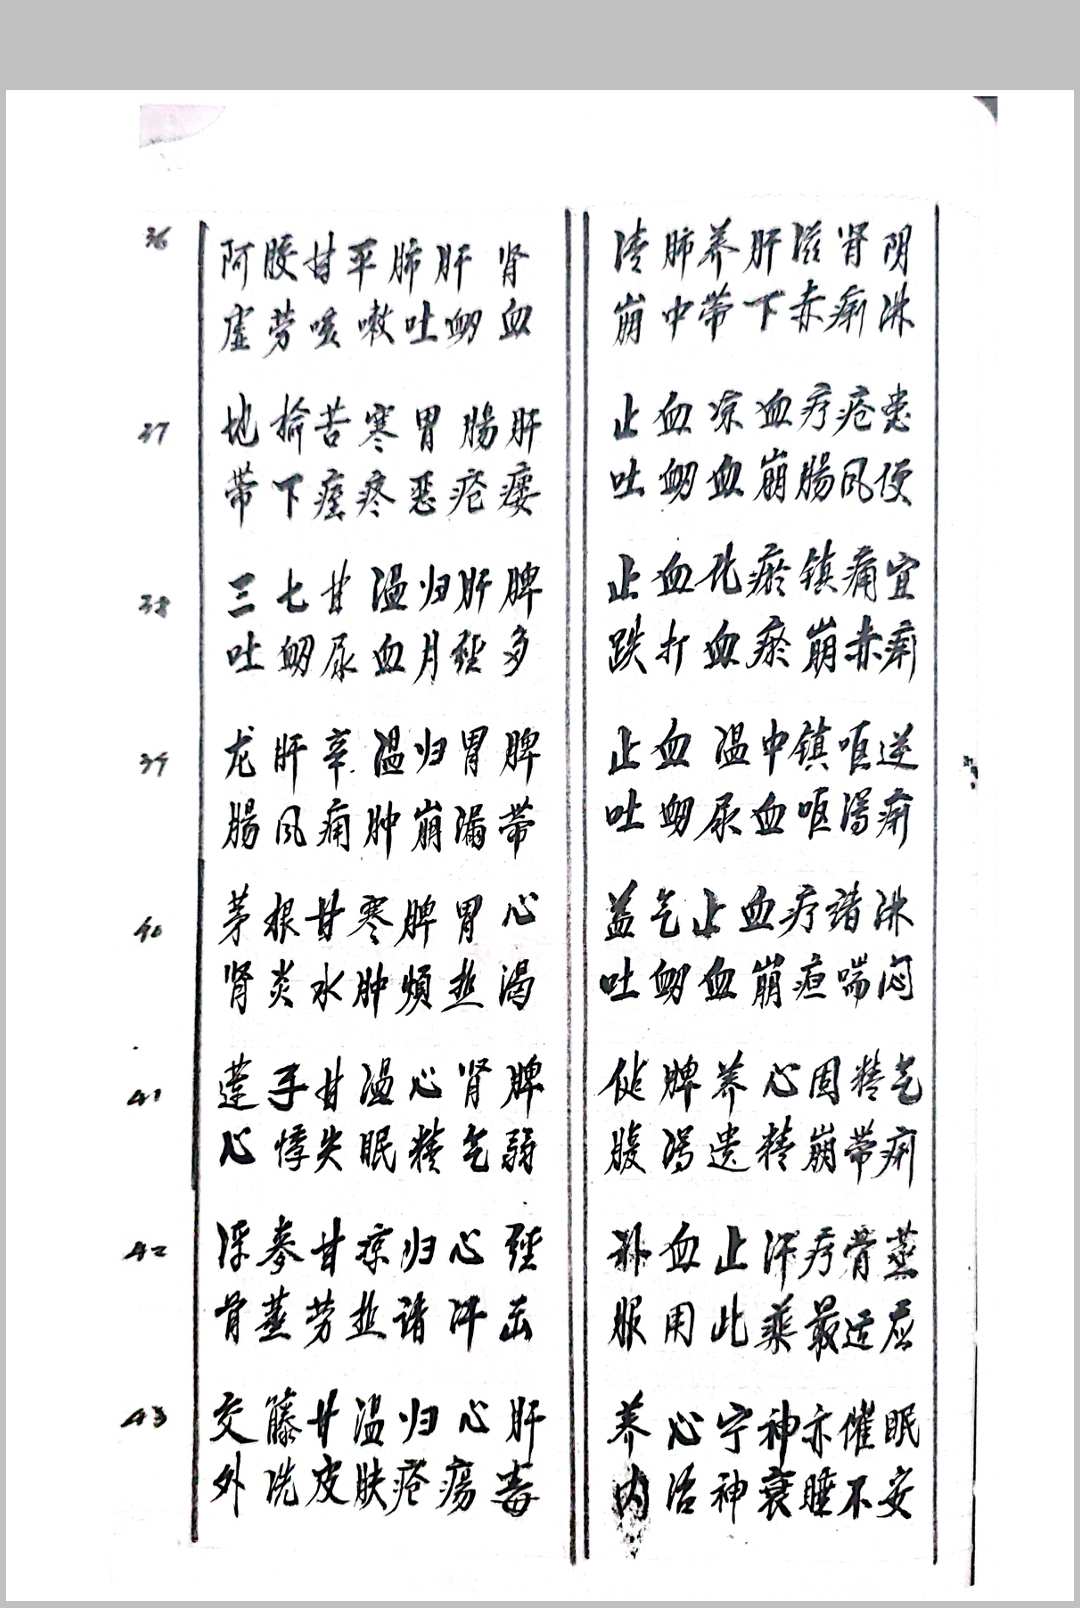 36 阿胶甘平肺肝肾 清肺养肝滋肾阴
虚劳咳嗽吐衄血 崩中带下赤痢淋
37 地榆苦寒胃肠肝 止血凉血疗疮患
带下痊疼恶疮瘘 吐衄血崩肠风便
38 三七甘温归肝脾 止血化瘀镇痛宜
吐衄尿血月经多 跌打血瘀崩赤痢
39 龙肝辛温归胃脾 止血温中镇呕逆
肠风痈肿崩漏带 吐衄尿血呕泻痢
40 茅根甘寒脾胃心 益气止血疗诸淋
肾炎水肿烦热渴 吐衄血崩疸喘闷
41 莲子甘温心肾脾 健脾养心固精气
心悸失眠精气弱 腹泻遗精崩带痢
42 浮麦甘凉归心经 补血止汗疗骨蒸
骨蒸劳热诸汗出 服用此药最适应
43 交藤甘温归心肝 养心宁神亦催眠
外洗皮肤疮疡毒 内治神衰睡不安